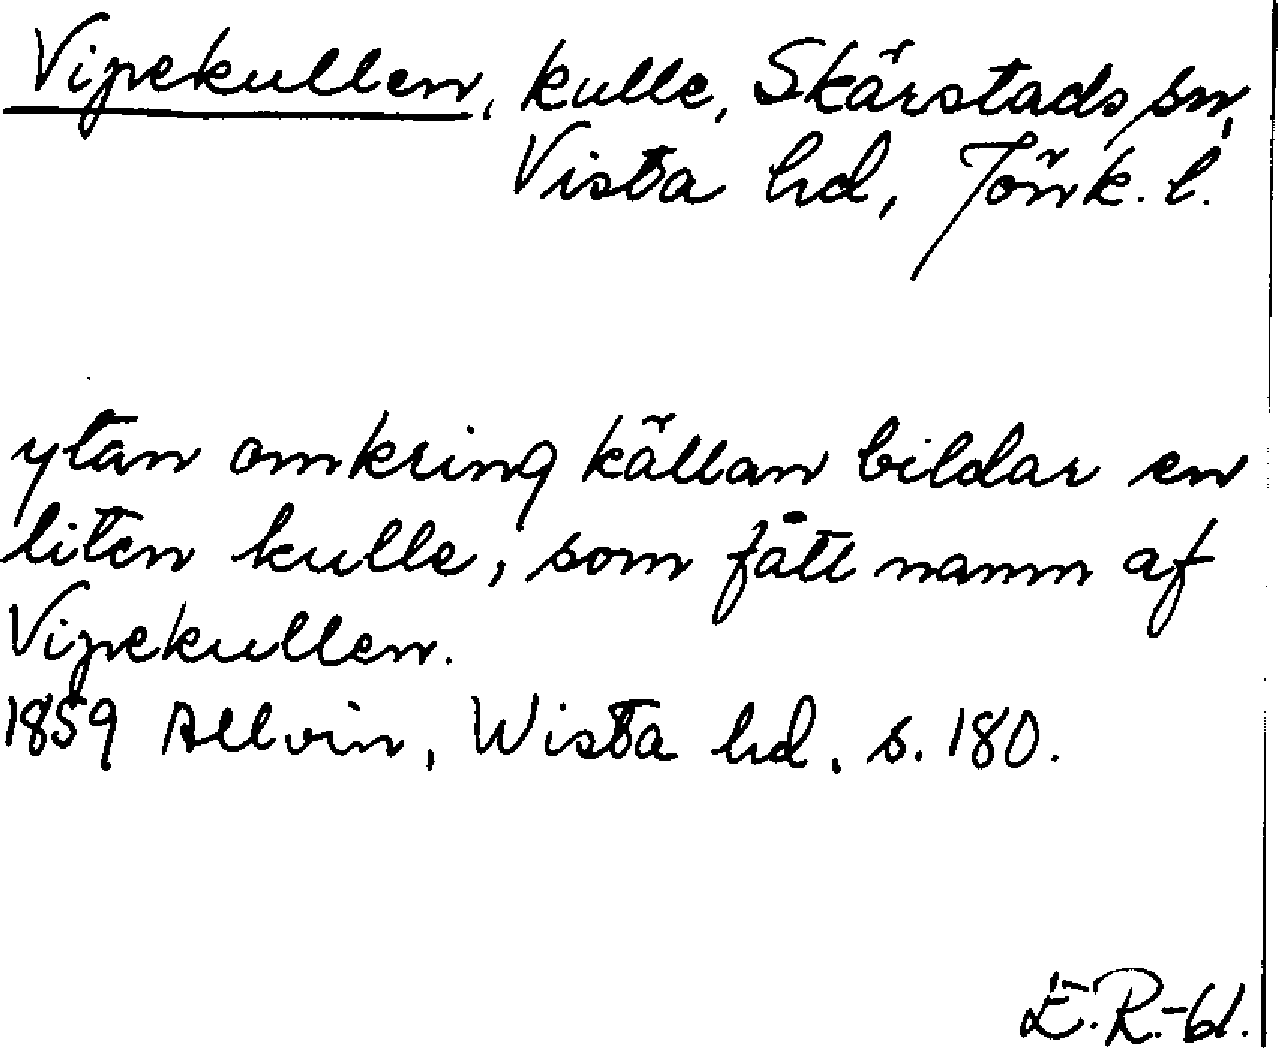 Vipekullen, kulle, Skärstads sn,
Vista hd, Jönk. l.
ytan omkring källan bildar en
liten kulle, som fått namn af
Vipekullen.
1859 Allvin, Wista hd. s. 180.
E.R.-61.